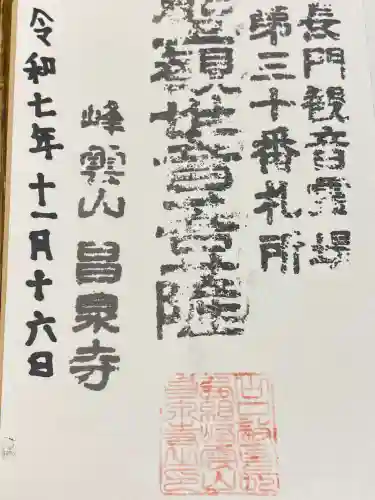 長門観音霊場
第三十番札所
観世音菩薩
峰雲山 昌泉寺
令和七年十一月十六日